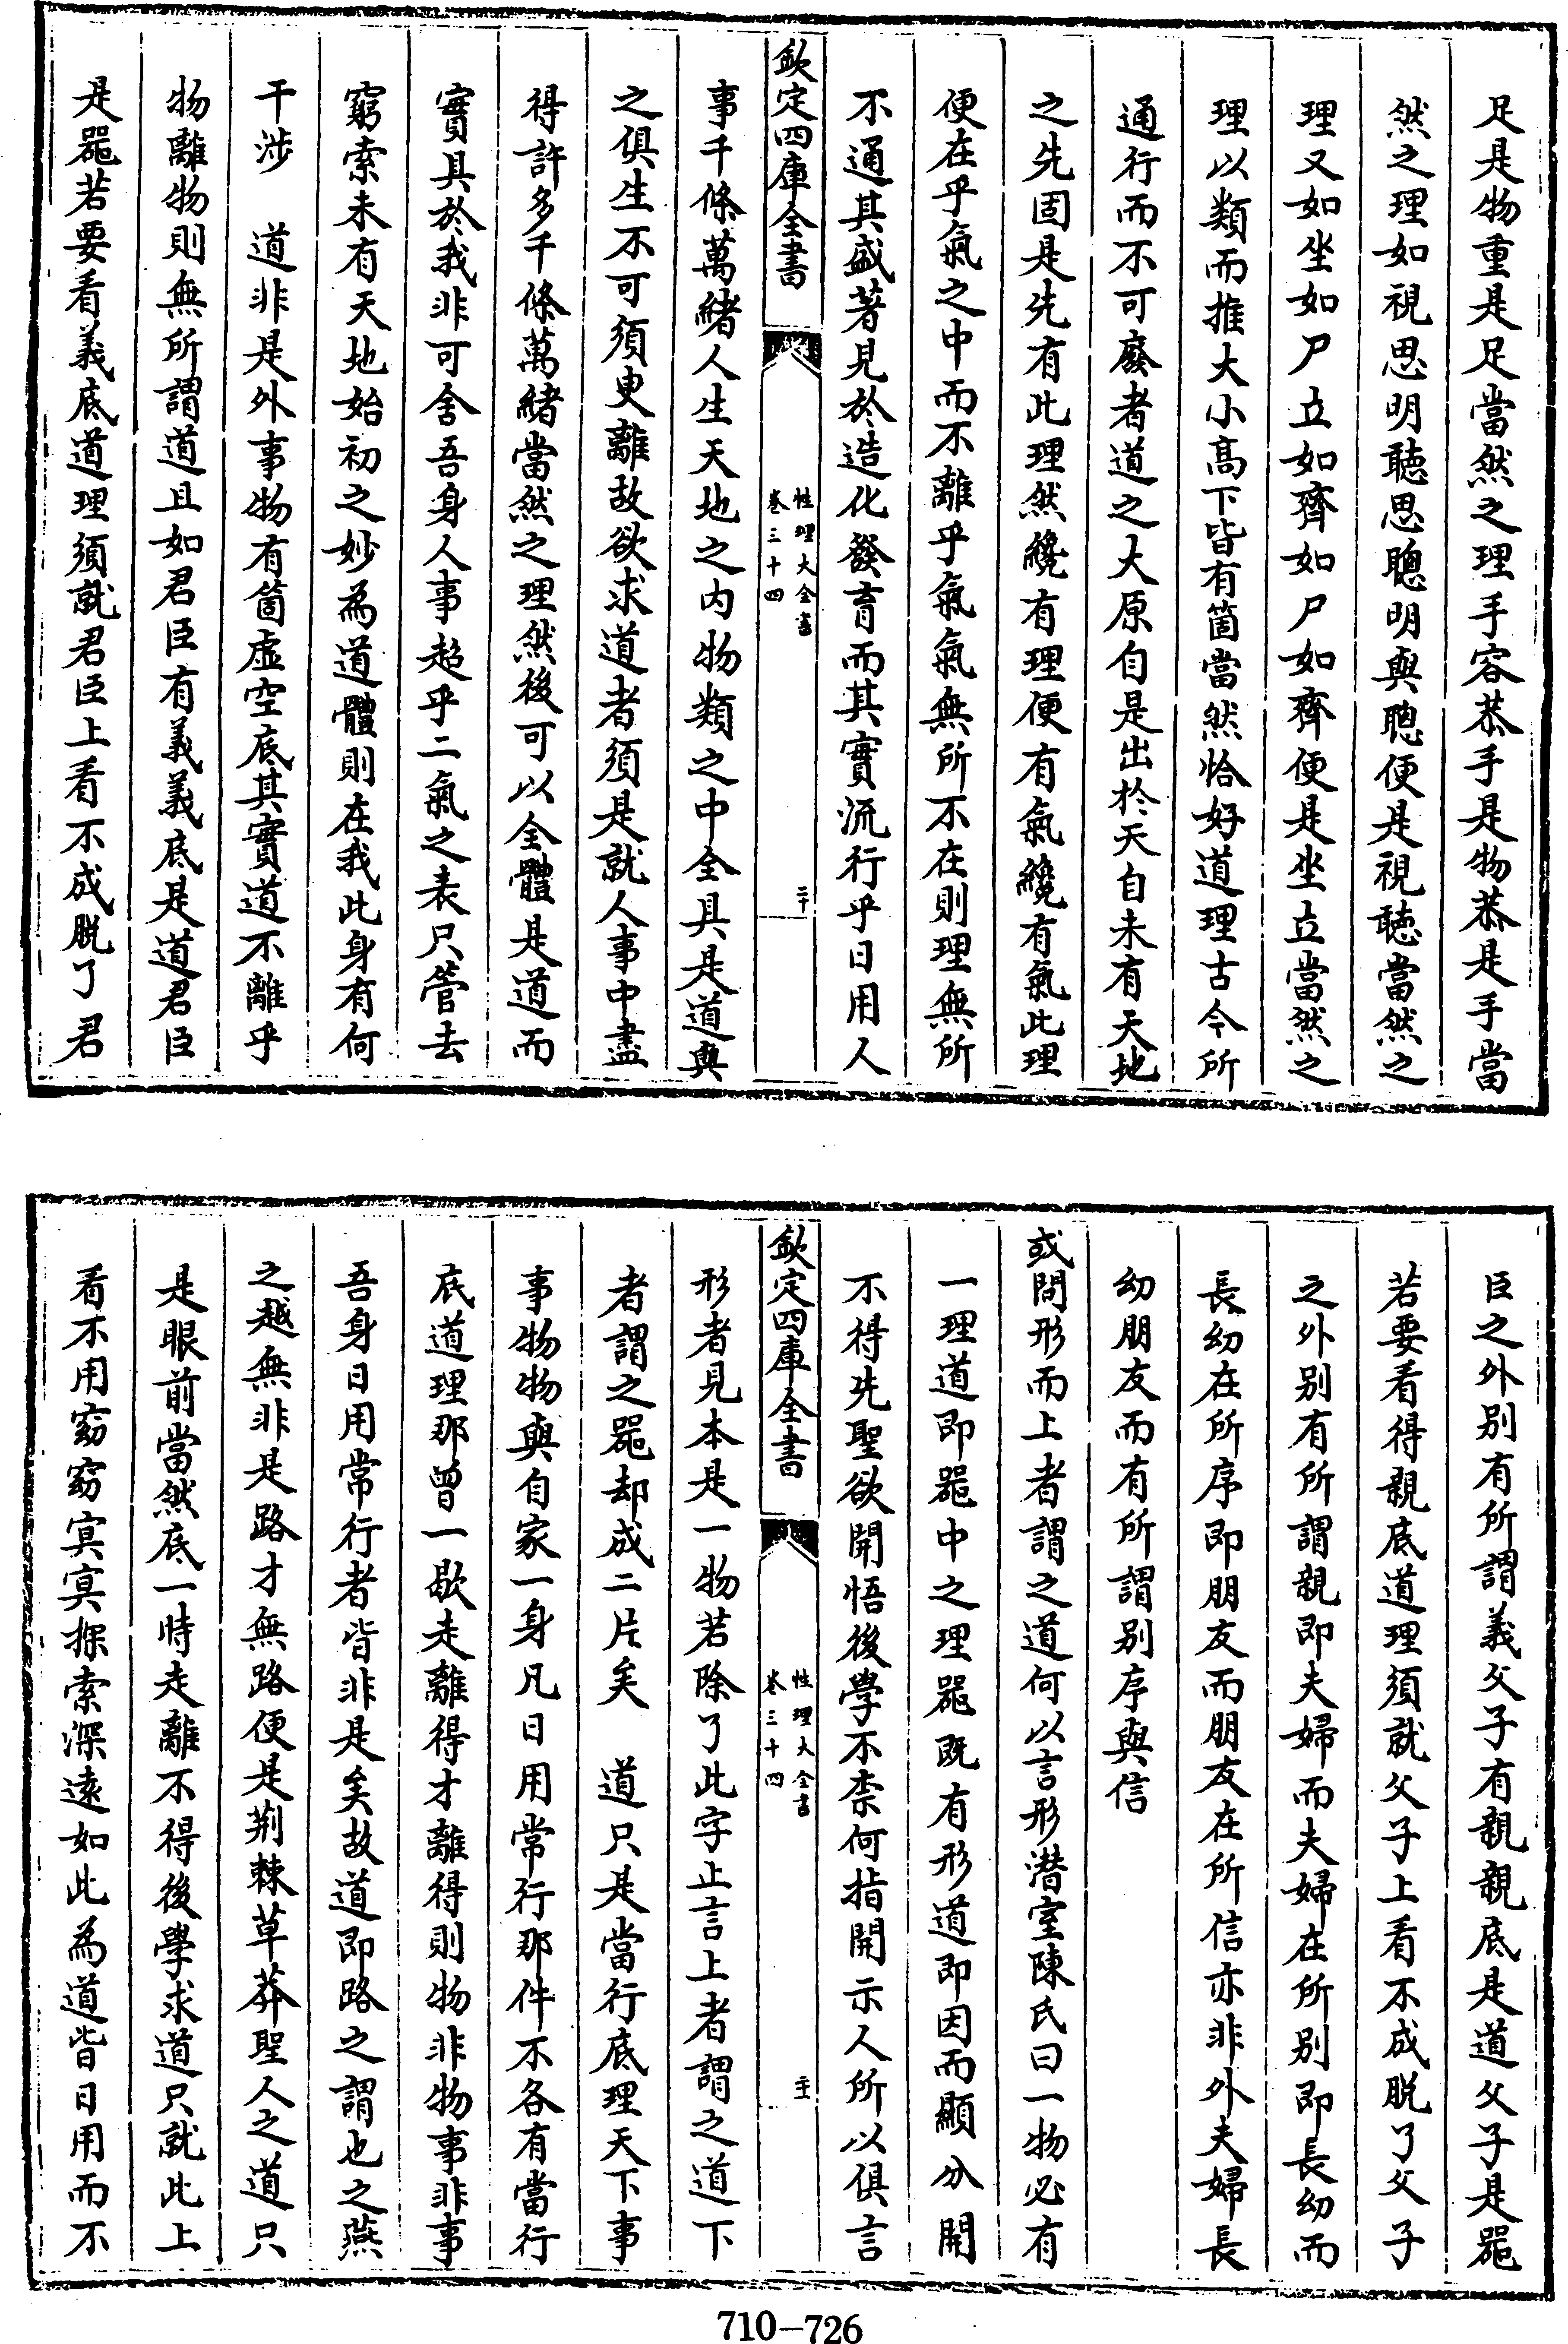 足是物重是足當然之理手容恭手是物恭是手當
然之理如視思明聽思聰明與聰便是視聽當然之
理又如坐如尸立如齊如尸如齊便是坐立當然之
理以類而推大小高下皆有箇當然恰好道理古今所
通行而不可廢者道之大原自是出於天自未有天地
之先固是先有此理然纔有理便有氣纔有氣此理
便在乎氣之中而不離乎氣氣無所不在則理無所
不通其盛著見於造化發育而其實流行乎日用人
欽定四庫全書
性理大全書
卷三十四
二十
事千條萬緒人生天地之內物類之中全具是道與
之俱生不可須臾離故欲求道者須是就人事中盡
得許多千條萬緒當然之理然後可以全體是道而
實具於我非可舍吾身人事超乎二氣之表只管去
窮索未有天地始初之妙為道體則在我此身有何
干涉　道非是外事物有箇虛空底其實道不離乎
物離物則無所謂道且如君臣有義義底是道君臣
是器若要看義底道理須就君臣上看不成脫了君
臣之外别有所謂義父子有親親底是道父子是器
若要看得親底道理須就父子上看不成脫了父子
之外别有所謂親即夫婦而夫婦在所别即長幼而
長幼在所序即朋友而朋友在所信亦非外夫婦長
幼朋友而有所謂别序與信
或問形而上者謂之道何以言形潛室陳氏曰一物必有
一理道即器中之理器既有形道即因而顯分開
不得先聖欲開悟後學不柰何指開示人所以俱言
欽定四庫全書
性理大全書
卷三十四
二十一
形者見本是一物若除了此字止言上者謂之道下
者謂之器却成二片矣　道只是當行底理天下事
事物物與自家一身凡日用常行那件不各有當行
底道理那曾一歇走離得才離得則物非物事非事
吾身日用常行者皆非是矣故道即路之謂也之燕
之越無非是路才無路便是荆棘草莽聖人之道只
是眼前當然底一時走離不得後學求道只就此上
看不用窈窈冥冥探索深遠如此為道皆日用而不
710-726